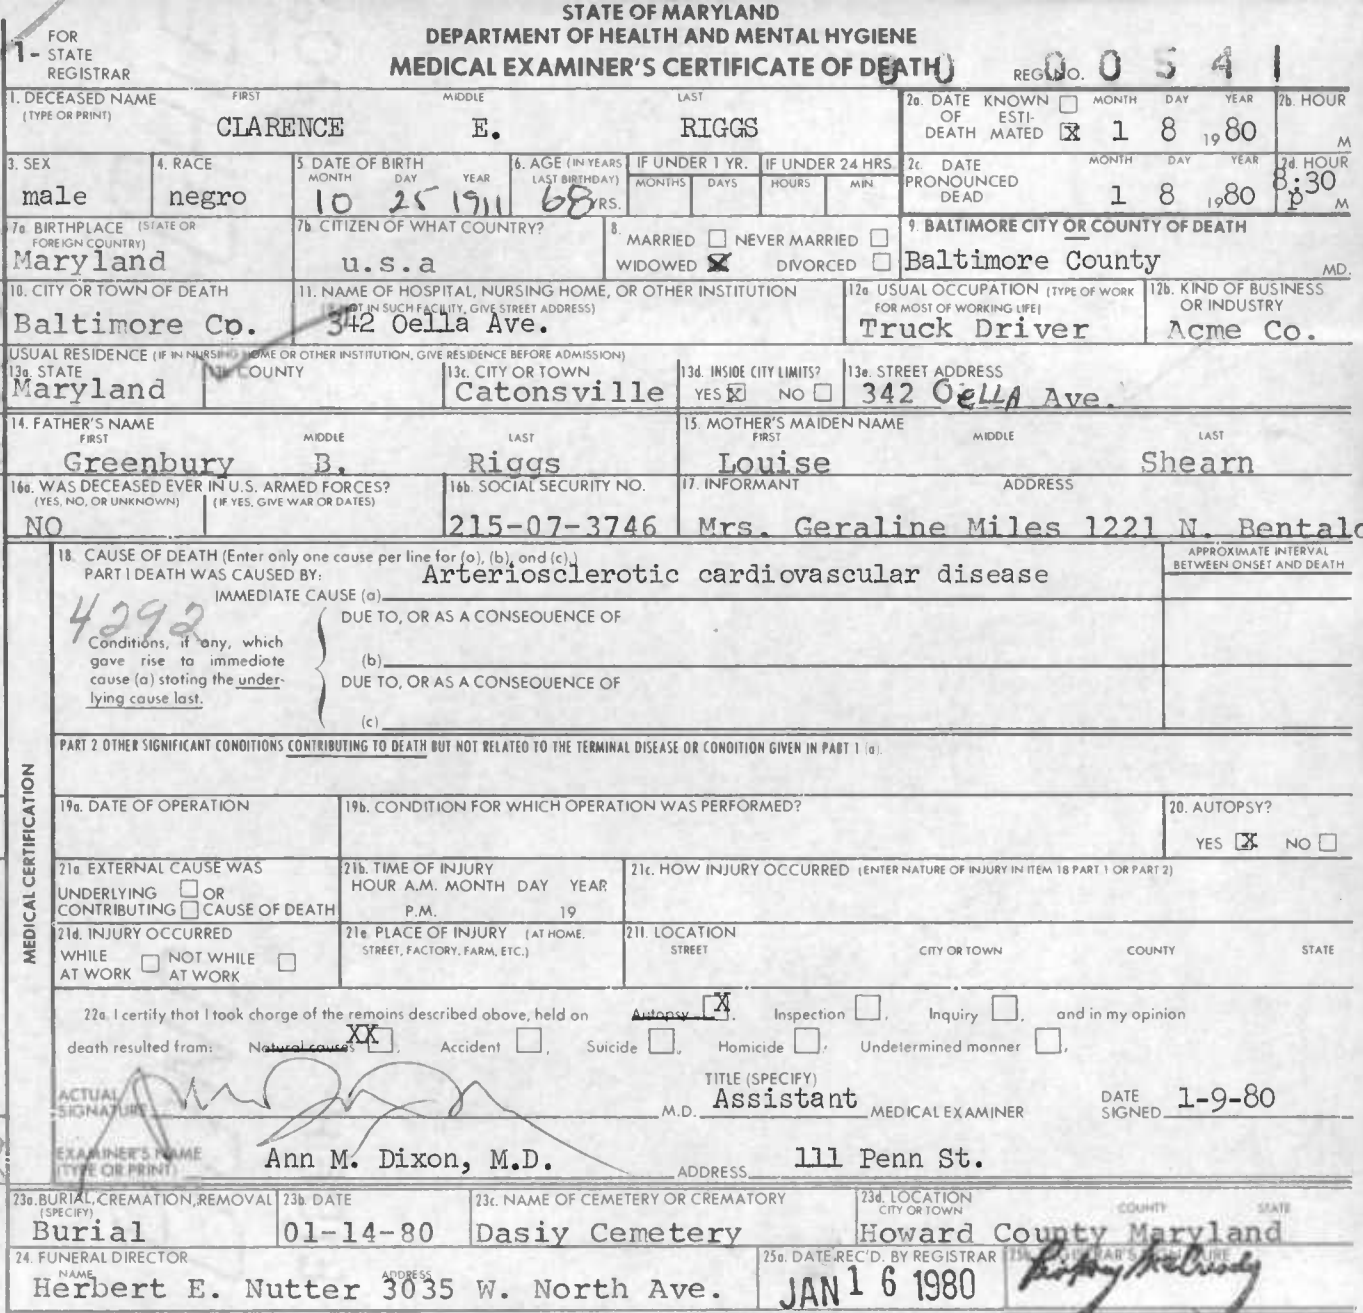 STATE OF MARYLAND
DEPARTMENT OF HEALTH AND MENTAL HYGIENE
MEDICAL EXAMINER'S CERTIFICATE OF DEATH
1- FOR STATE REGISTRAR
REG. NO. 0 0 5 4 1
1. DECEASED NAME (TYPE OR PRINT) FIRST MIDDLE LAST
CLARENCE E. RIGGS
2a. DATE OF DEATH KNOWN ESTIMATED X MONTH DAY YEAR 1 8 1980
2b. HOUR M
3. SEX male
4. RACE negro
5. DATE OF BIRTH MONTH DAY YEAR 10 25 1911
6. AGE (IN YEARS LAST BIRTHDAY) 68 YRS.
IF UNDER 1 YR. MONTHS DAYS
IF UNDER 24 HRS HOURS MIN.
2c. DATE PRONOUNCED DEAD MONTH DAY YEAR 1 8 1980
2d. HOUR 8:30 p M
7a. BIRTHPLACE (STATE OR FOREIGN COUNTRY) Maryland
7b. CITIZEN OF WHAT COUNTRY? u.s.a
8. MARRIED NEVER MARRIED
WIDOWED X DIVORCED
9. BALTIMORE CITY OR COUNTY OF DEATH
Baltimore County MD.
10. CITY OR TOWN OF DEATH Baltimore Co.
11. NAME OF HOSPITAL, NURSING HOME, OR OTHER INSTITUTION
NOT IN SUCH FACILITY, GIVE STREET ADDRESS)
342 Oella Ave.
12a. USUAL OCCUPATION (TYPE OF WORK FOR MOST OF WORKING LIFE)
Truck Driver
12b. KIND OF BUSINESS OR INDUSTRY
Acme Co.
USUAL RESIDENCE (IF IN NURSING HOME OR OTHER INSTITUTION, GIVE RESIDENCE BEFORE ADMISSION)
13a. STATE Maryland
13b. COUNTY
13c. CITY OR TOWN Catonsville
13d. INSIDE CITY LIMITS? YES X NO
13e. STREET ADDRESS 342 OeLLA Ave.
14. FATHER'S NAME FIRST MIDDLE LAST
Greenbury B. Riggs
15. MOTHER'S MAIDEN NAME FIRST MIDDLE LAST
Louise Shearn
16a. WAS DECEASED EVER IN U.S. ARMED FORCES?
(YES, NO, OR UNKNOWN) (IF YES, GIVE WAR OR DATES)
NO
16b. SOCIAL SECURITY NO.
215-07-3746
17. INFORMANT ADDRESS
Mrs. Geraline Miles 1221 N. Bentalo
MEDICAL CERTIFICATION
18. CAUSE OF DEATH (Enter only one cause per line for (a), (b), and (c).)
PART I DEATH WAS CAUSED BY:
IMMEDIATE CAUSE (a) Arteriosclerotic cardiovascular disease
APPROXIMATE INTERVAL BETWEEN ONSET AND DEATH
4292
DUE TO, OR AS A CONSEQUENCE OF
Conditions, if any, which
gave rise to immediate
cause (a) stating the under-
lying cause last.
(b)
DUE TO, OR AS A CONSEQUENCE OF
(c)
PART 2 OTHER SIGNIFICANT CONDITIONS CONTRIBUTING TO DEATH BUT NOT RELATED TO THE TERMINAL DISEASE OR CONDITION GIVEN IN PART 1 (a).
19a. DATE OF OPERATION
19b. CONDITION FOR WHICH OPERATION WAS PERFORMED?
20. AUTOPSY?
YES X NO
21a. EXTERNAL CAUSE WAS
UNDERLYING OR
CONTRIBUTING CAUSE OF DEATH
21b. TIME OF INJURY
HOUR A.M. MONTH DAY YEAR
P.M. 19
21c. HOW INJURY OCCURRED (ENTER NATURE OF INJURY IN ITEM 18 PART 1 OR PART 2)
21d. INJURY OCCURRED
WHILE AT WORK NOT WHILE AT WORK
21e. PLACE OF INJURY (AT HOME, STREET, FACTORY, FARM, ETC.)
21f. LOCATION
STREET CITY OR TOWN COUNTY STATE
22a. I certify that I took charge of the remains described above, held on Autopsy X, Inspection, Inquiry, and in my opinion
death resulted from: Natural causes XX, Accident, Suicide, Homicide, Undetermined manner.
ACTUAL SIGNATURE M.D.
TITLE (SPECIFY) Assistant MEDICAL EXAMINER
DATE SIGNED 1-9-80
EXAMINER'S NAME (TYPE OR PRINT) Ann M. Dixon, M.D.
ADDRESS 111 Penn St.
23a. BURIAL, CREMATION, REMOVAL (SPECIFY) Burial
23b. DATE 01-14-80
23c. NAME OF CEMETERY OR CREMATORY Dasiy Cemetery
23d. LOCATION CITY OR TOWN COUNTY STATE
Howard County Maryland
24. FUNERAL DIRECTOR
NAME ADDRESS
Herbert E. Nutter 3035 W. North Ave.
25a. DATE REC'D. BY REGISTRAR
JAN 16 1980
25b. REGISTRAR'S SIGNATURE